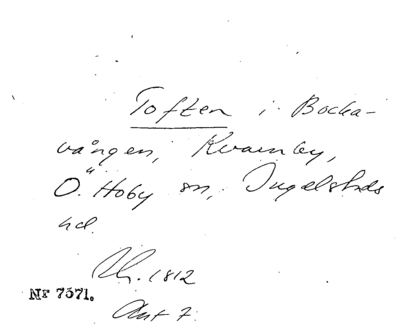 Toften i Bocka-
vången, Kvarnby,
Ö. Hoby sn, Ingelstads
hd.
Sk. 1812
Akt 7.
Nr 7571.